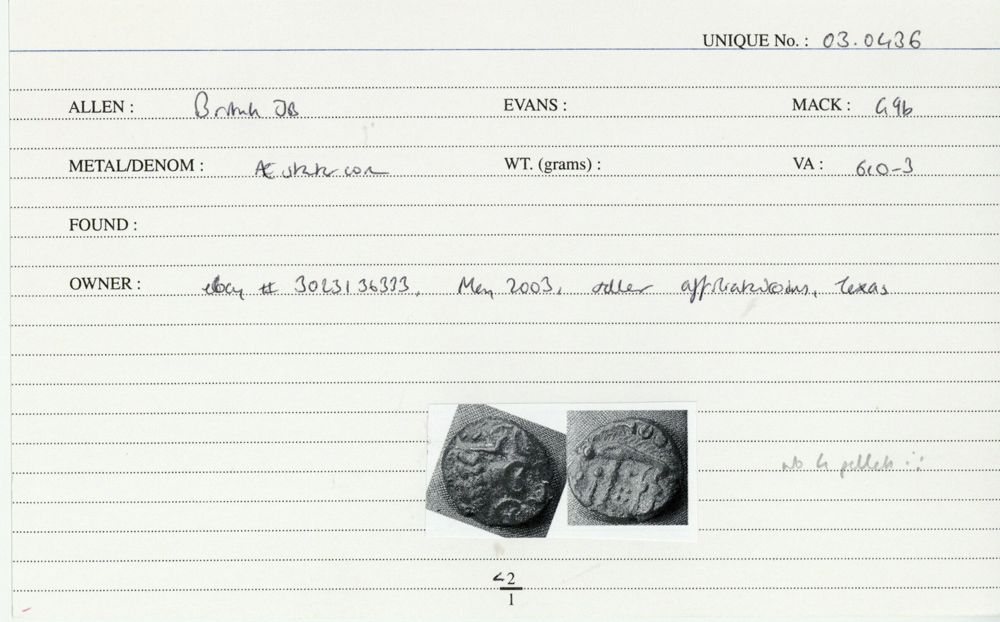 UNIQUE No. : 03.0436
ALLEN : British EVANS : MACK : G9b
METAL/DENOM : Æ stater core WT. (grams) : VA : 610-3
FOUND :
OWNER : ebay # 3023136333, May 2003, seller Texas
pellets
<2
1